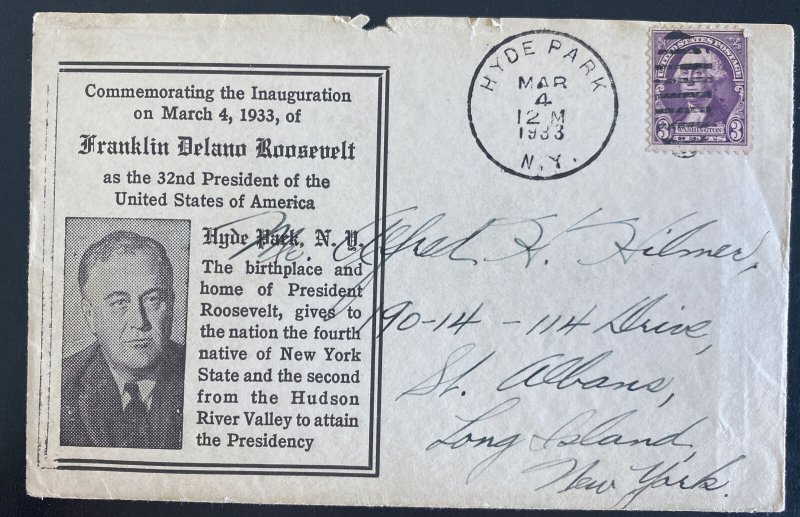 Commemorating the Inauguration
on March 4, 1933, of
Franklin Delano Roosevelt
as the 32nd President of the
United States of America
Hyde Park, N. Y.
The birthplace and
home of President
Roosevelt, gives to
the nation the fourth
native of New York
State and the second
from the Hudson
River Valley to attain
the Presidency
HYDE PARK
MAR
4
12 M
1933
N.Y.
UNITED STATES POSTAGE
3 WASHINGTON 3
CENTS
Mr. Alfred H. Hilmer,
190-14 - 114 Drive,
St. Albans,
Long Island,
New York.